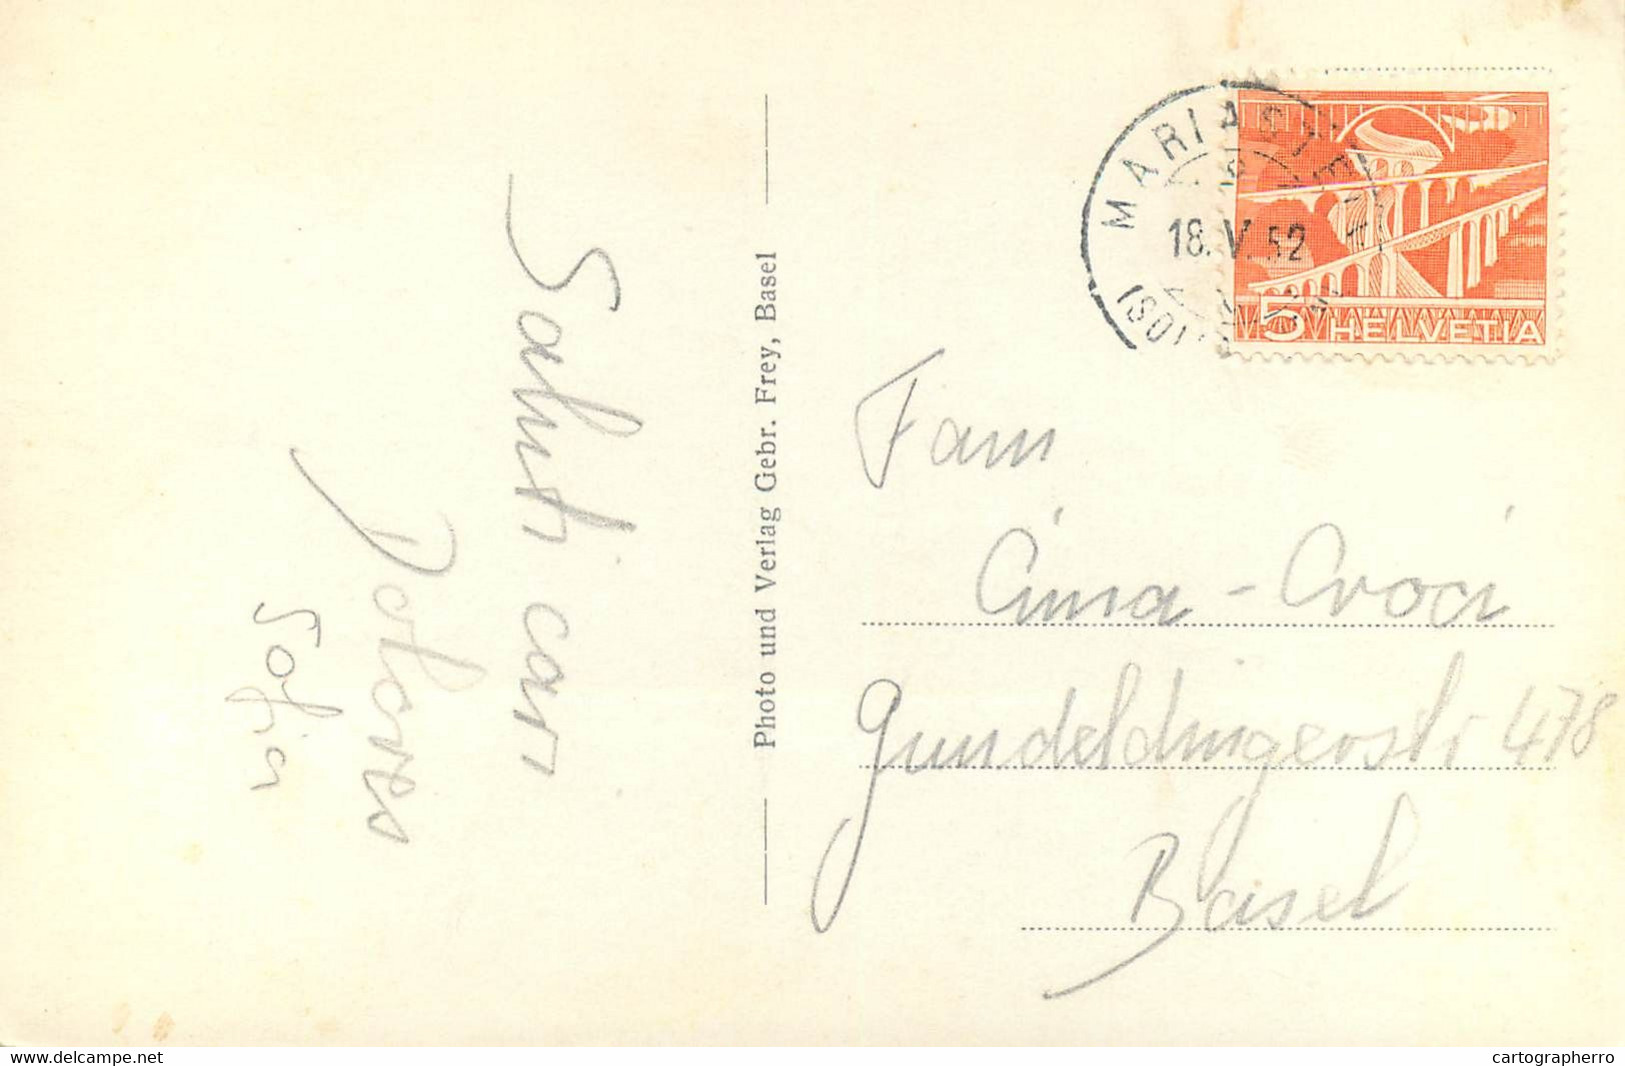 Saluti cari
Dolores
Sofia
Photo und Verlag Gebr. Frey, Basel
MARIASTEIN
18.V.52
(SOLO
5 HELVETIA
Fam
Cima - Croci
Gundeldingerstr 478
Basel
www.delcampe.net
cartographerro